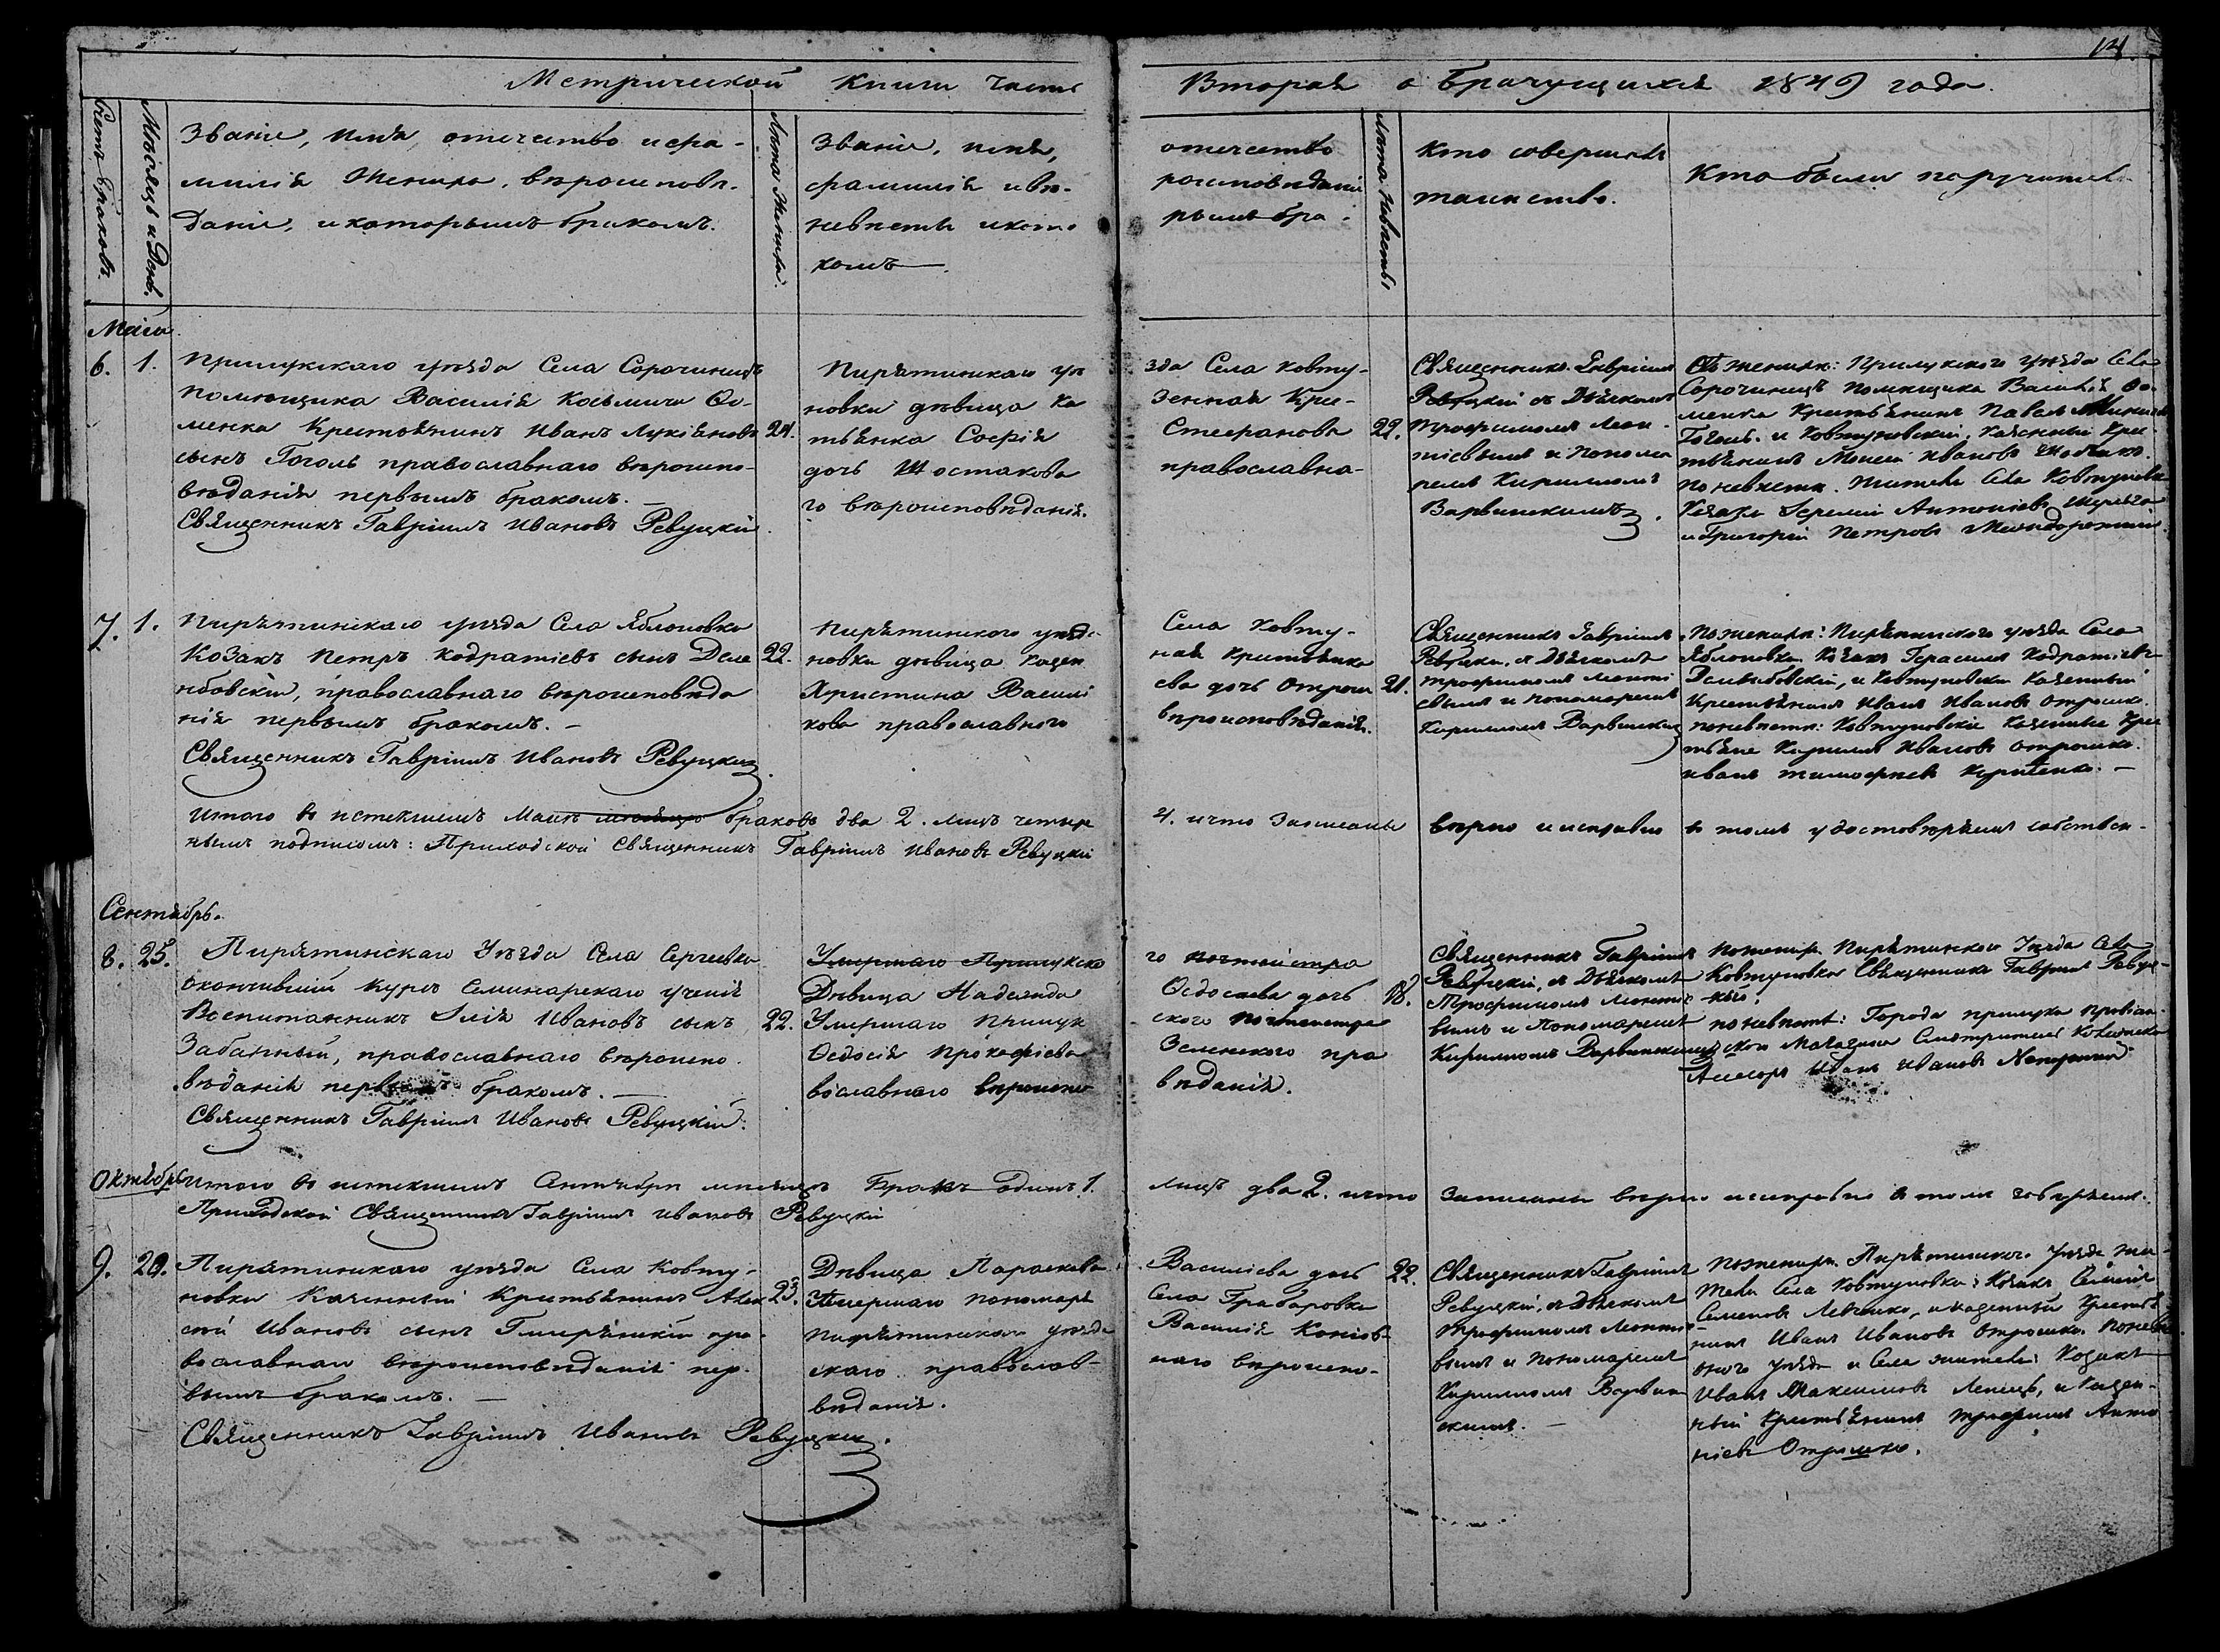 14.
Метрической Книги Часть Вторая о Брачущихся 1849 года.
Счетъ браковъ.
Мѣсяцъ и День.
Званіе, имя, отечество и фа-
милія Жениха, вѣроисповѣ-
даніе, и которымъ бракомъ.
Лѣта Жениха.
Званіе, имя, отечество
фамилія и вѣ- роисповѣданіе
невѣсты и кото- рымъ бра-
комъ.
Лѣта Невѣсты
Кто совершалъ
таинство.
Кто были поручител.
Маія
6. 1.
Прилукскаго уѣзда Села Сорочинецъ
Помѣщика Василія Косьмича Ос-
менка Крестьянинъ Иванъ Лукіановъ
сынъ Гоголь православнаго вѣроиспо-
вѣданія первымъ бракомъ.
Священникъ Гавріилъ Ивановъ Ревуцкій
24.
Пирятинскаго уѣ зда Села Ковту-
новки дѣвица Ка зенная Кре-
тьянка Софія Стефанова
дочь Шостакова православна-
го вѣроисповѣданія.
22.
Священникъ Гавріилъ
Ревуцкій съ Дьячкомъ
Трофимомъ Леон-
тіевымъ и Понома
ремъ Кирилломъ
Варвинскимъ.
Прилукского уѣзда Села
Сорочинецъ помѣщика Василія Ос-
менка Крестьянинъ Павелъ
Гоголь. и Ковтуновскій, Казенный Кре-
тьянинъ Моисей Ивановъ
по невѣстѣ. Жители Села Ковтуновки
Козакъ Іеремій Антоніевъ
и Григорій Петровъ
7. 1.
Пирятинскаго уѣзда Села Яблоновки
Козакъ Петръ Кодратіевъ сынъ Деле
нбовскій, православнаго вѣроисповѣда
нія первымъ бракомъ.
Священникъ Гавріилъ Ивановъ Ревуцкій
22.
Пирятинского уѣзда Села Ковту-
новки дѣвица Казен ная Крестьянка
Христина Василі ева дочь Отрош
кова православного вѣроисповѣданія.
21.
Священникъ Гавріилъ
Ревуцкій, съ Дьячкомъ
Трофимомъ Леонті
евымъ и Пономаремъ
Кирилломъ Варвинским
По жениху: Пирятинского уѣзда Села
Яблоновки Козакъ Герасимъ Кодратіевъ
и Ковтуновски Казенный
Крестьянинъ Иванъ Ивановъ Отрошко.
по невѣстѣ: Ковтуновскіе Казенные Крес
тьяне Кириллъ Ивановъ Отрошко.
Иванъ Тимофеевъ
Итого въ истекшемъ Маіи мѣсяцѣ браковъ два 2. лицъ четыре 4. и что Записаны вѣрно и исправно въ томъ удостовѣряемъ собствен-
нымъ подписомъ: Приходской Священникъ Гавріилъ Ивановъ Ревуцкій
Сентябрь.
8. 25.
Пирятинскаго Уѣзда Села Сергѣевки
окончившій Курсъ Семинарскаго ученія
Воспитанникъ Илія Ивановъ сынъ
Забанный, православнаго вѣроиспо-
вѣданія первымъ бракомъ.
Священникъ Гавріилъ Ивановъ Ревуцкій.
22.
Умершаго Прилукска го почтмейстра
Дѣвица Надежда Ѳедосіева дочь
Умершаго Прилук ского почтмейстра
Ѳедосія Прокофіева Зеленского пра
вославнаго вѣроиспо вѣданія.
18.
Священникъ Гавріилъ
Ревуцкій, съ Дьячкомъ
Трофимомъ Леонтіе
вымъ и Пономаремъ
Кирилломъ Варвинскимъ
По жениху Пирятинского Уѣзда Села
Ковтуновки Священникъ Гавріилъ Ревуц-
кій.
по невѣстѣ: Города Прилуки Провіан-
ской Магазины Смотритель
Иванъ Ивановъ
Октябрь
Итого въ истекшемъ Сентябрѣ мѣсяцѣ Бракъ одинъ 1. лицъ два 2. и что Записаны вѣрно и исправно въ томъ
Приходской Священникъ Гавріилъ Ивановъ Ревуцкій
9. 29.
Пирятинскаго уѣзда Села Ковту-
новки Казенный Крестьянинъ Алек
сѣй Ивановъ сынъ пра-
вославнаго вѣроисповѣданія пер-
вымъ бракомъ.
Священникъ Гавріилъ Ивановъ Ревуцкій.
23.
Дѣвица Параскева Василіева дочь
Умершаго пономаря Села Грабаровки
Пирятинскаго уѣзда Василія Коніов-
скаго православ- наго вѣроиспо-
вѣданія.
22.
Священникъ Гавріилъ
Ревуцкій, съ Дьячкомъ
Трофимомъ Леонтіе
вымъ и Пономаремъ
Кирилломъ Варвин
скимъ.
По жениху Пирятинского Уѣзда жи-
тели Села Ковтуновки: Козакъ
Семеновъ Левченко, и казенный Крестья
нинъ Иванъ Ивановъ Отрошко. По невѣ
того уѣзда и Села жители: Козакъ
Иванъ Максимовъ и Казен-
ный Крестьянинъ Трофимъ Анто
ніевъ Отрошко.